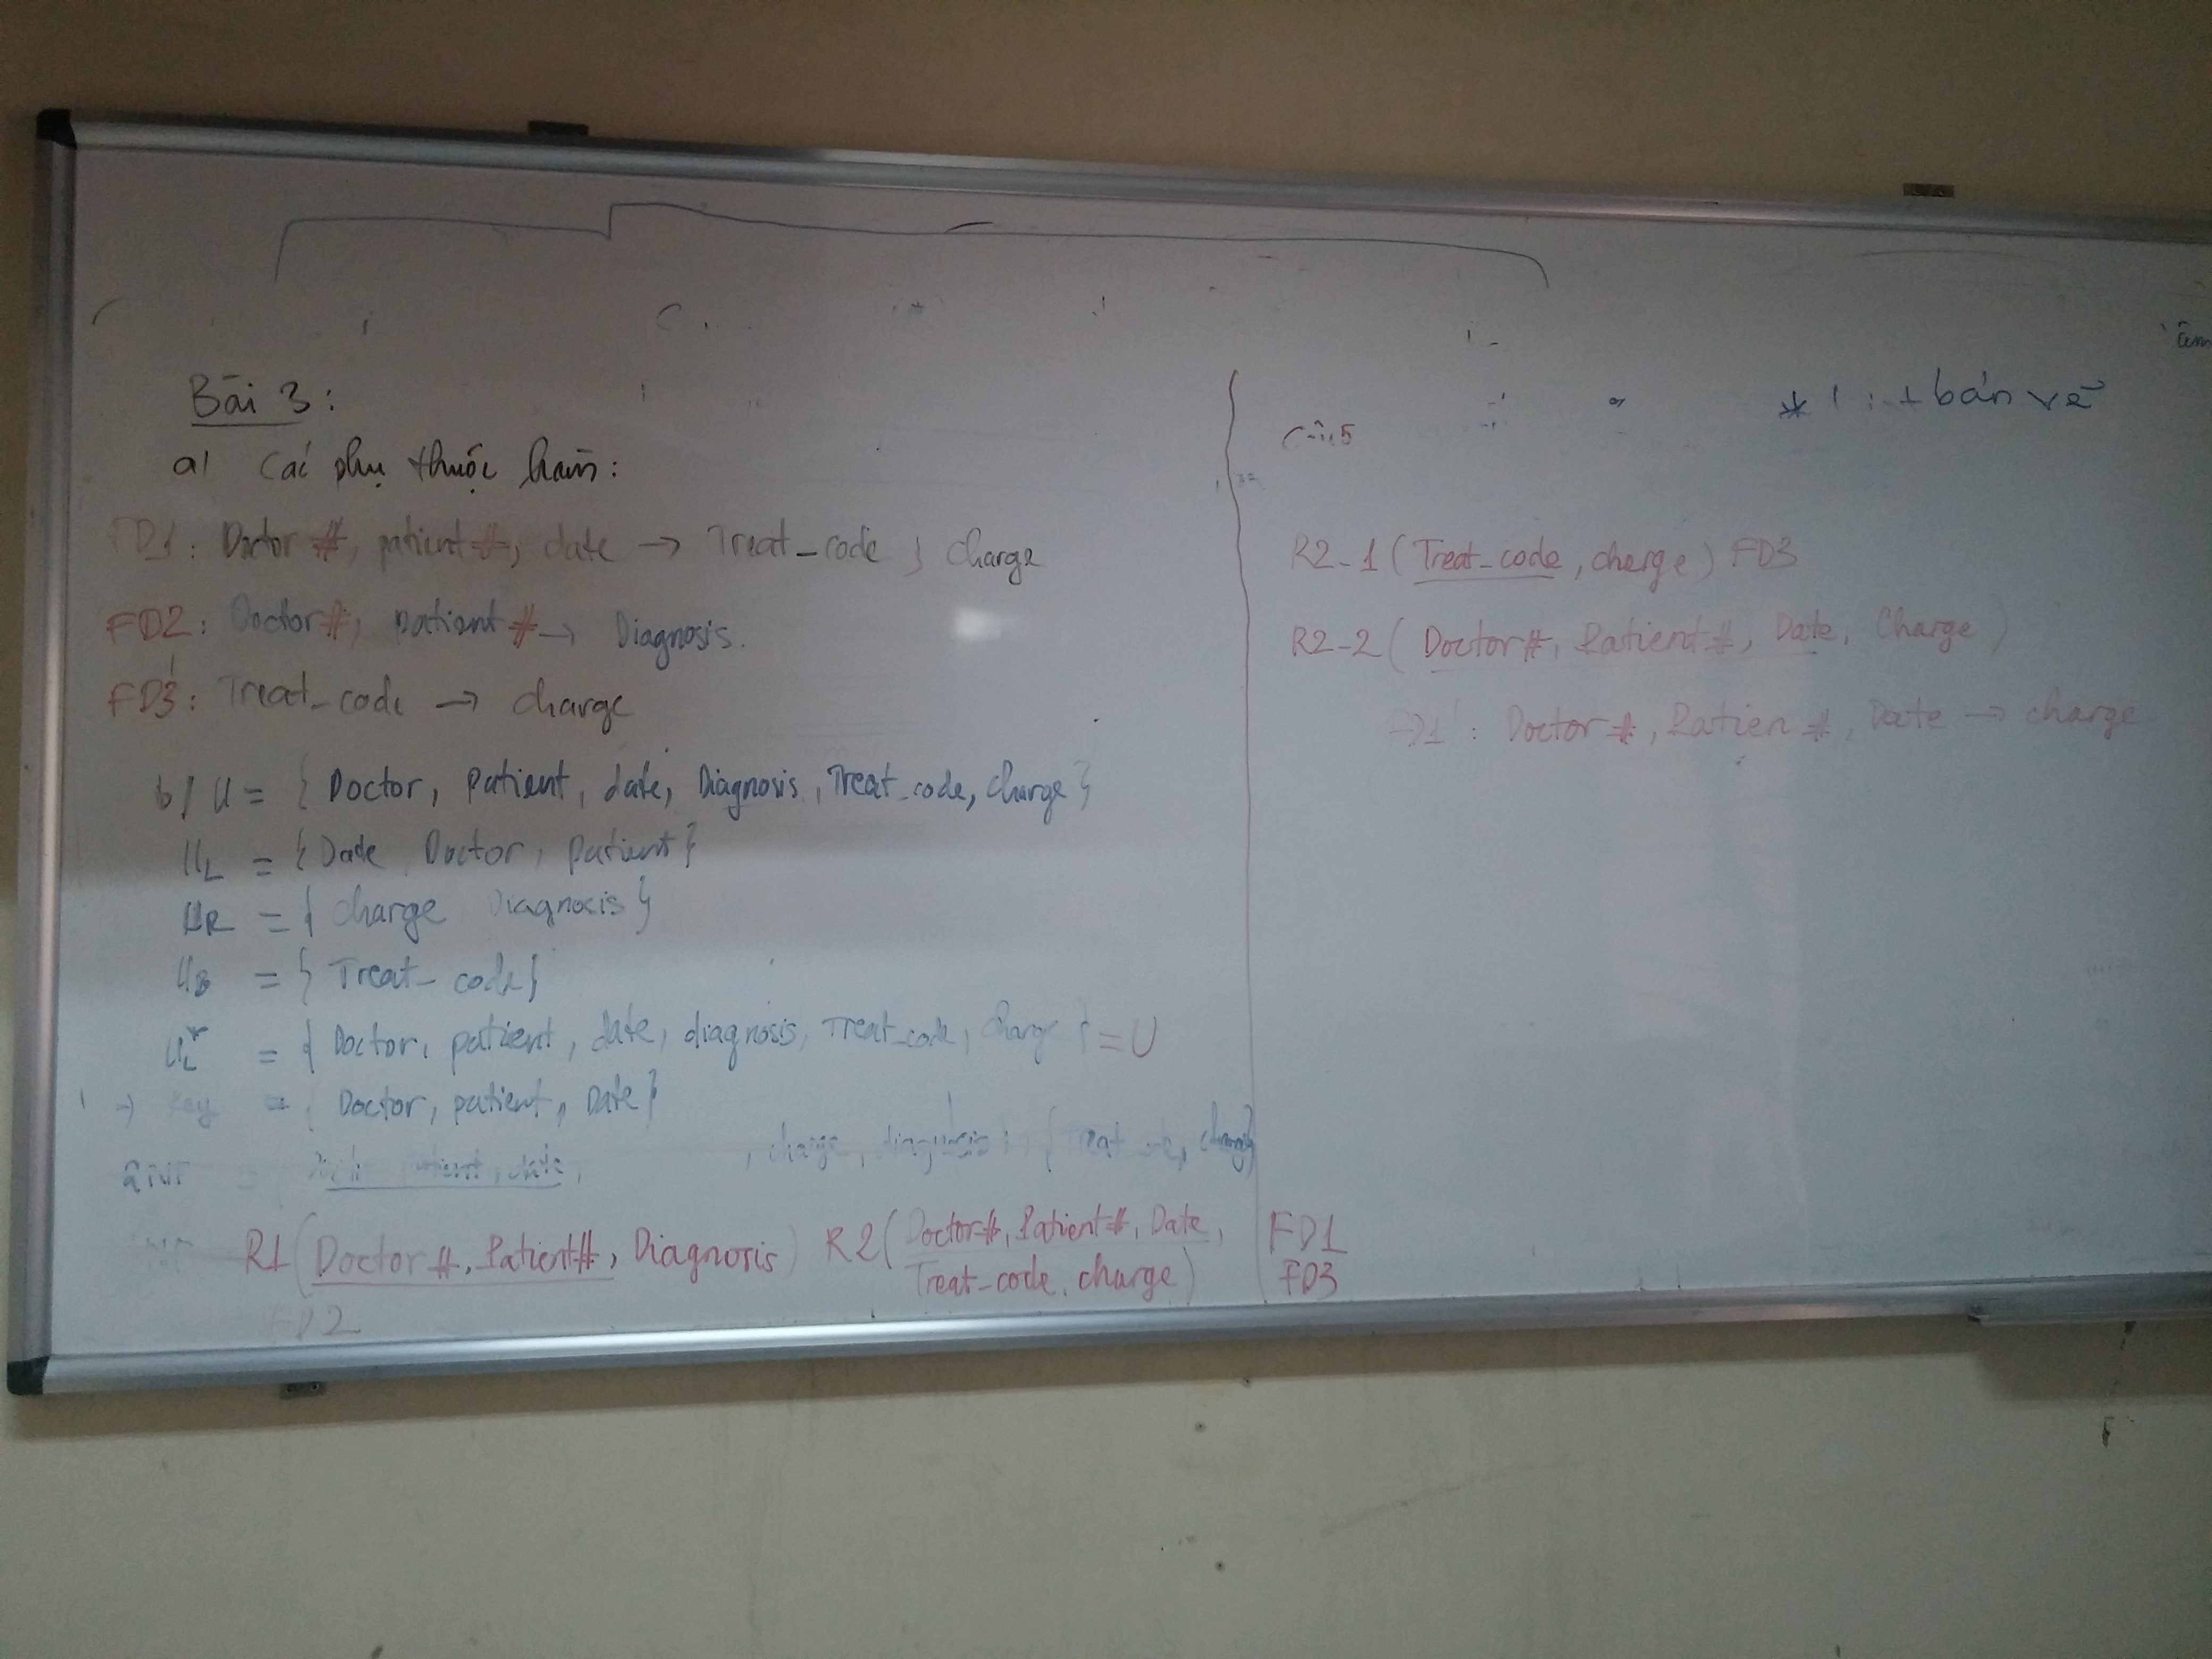 Bài 3:
a/ Các phụ thuộc hàm:
FD1: Doctor #, patient #, date → Treat_code, charge
FD2: Doctor #, patient # → Diagnosis.
FD3: Treat_code → charge
b/ U = { Doctor, patient, date, Diagnosis, Treat_code, charge }
UL = { Date, Doctor, patient }
UR = { charge Diagnosis }
UB = { Treat_code }
UL+ = { Doctor, patient, date, diagnosis, Treat_code, charge } = U
→ key = { Doctor, patient, Date }
patient, date, , charge, diagnosis charge
R1 ( Doctor #, Patient #, Diagnosis ) R2 ( Doctor #, Patient #, Date, Treat_code, charge ) FD1 FD3
FD2
* bán vé
Câu 5
R2-1 ( Treat_code, charge ) FD3
R2-2 ( Doctor #, Patient #, Date, Charge )
1' : Doctor #, Patien #, Date → charge